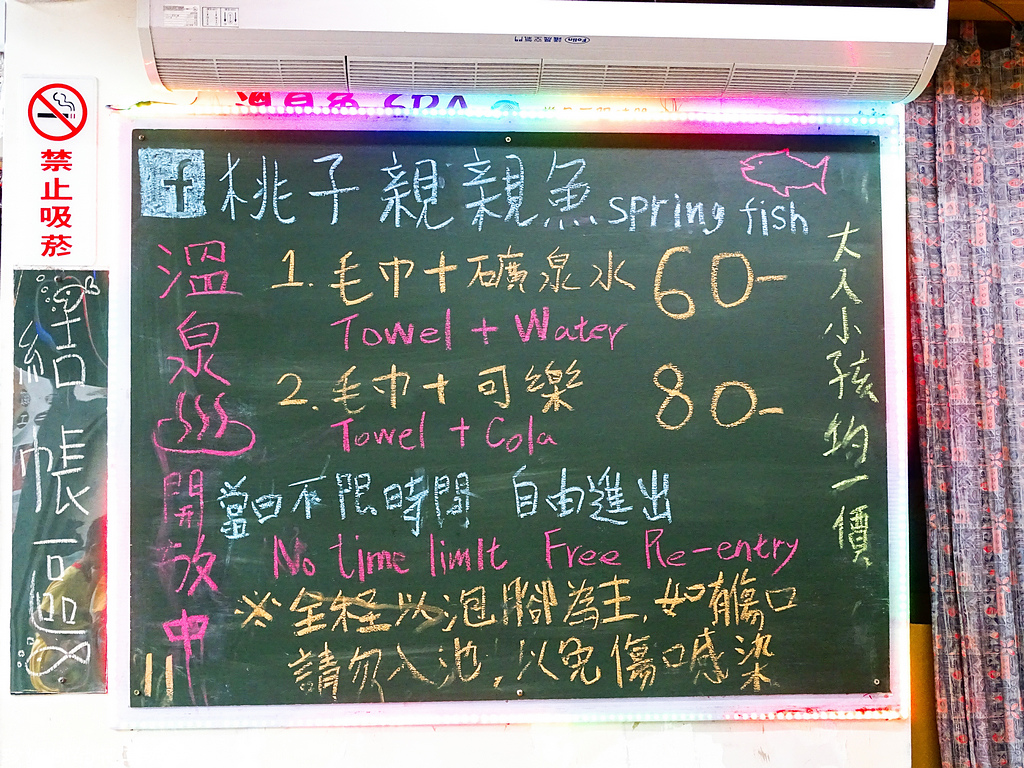 Folin
溫泉魚 SPA
禁止吸菸
結帳區
f 桃子親親魚 spring fish
溫泉開放中
1. 毛巾+礦泉水 60-
Towel + Water
2. 毛巾+可樂 80-
Towel + Cola
當日不限時間 自由進出
No time limit Free Re-entry
※全程以泡腳為主,如有傷口
請勿入池,以免傷口感染
大人小孩均一價